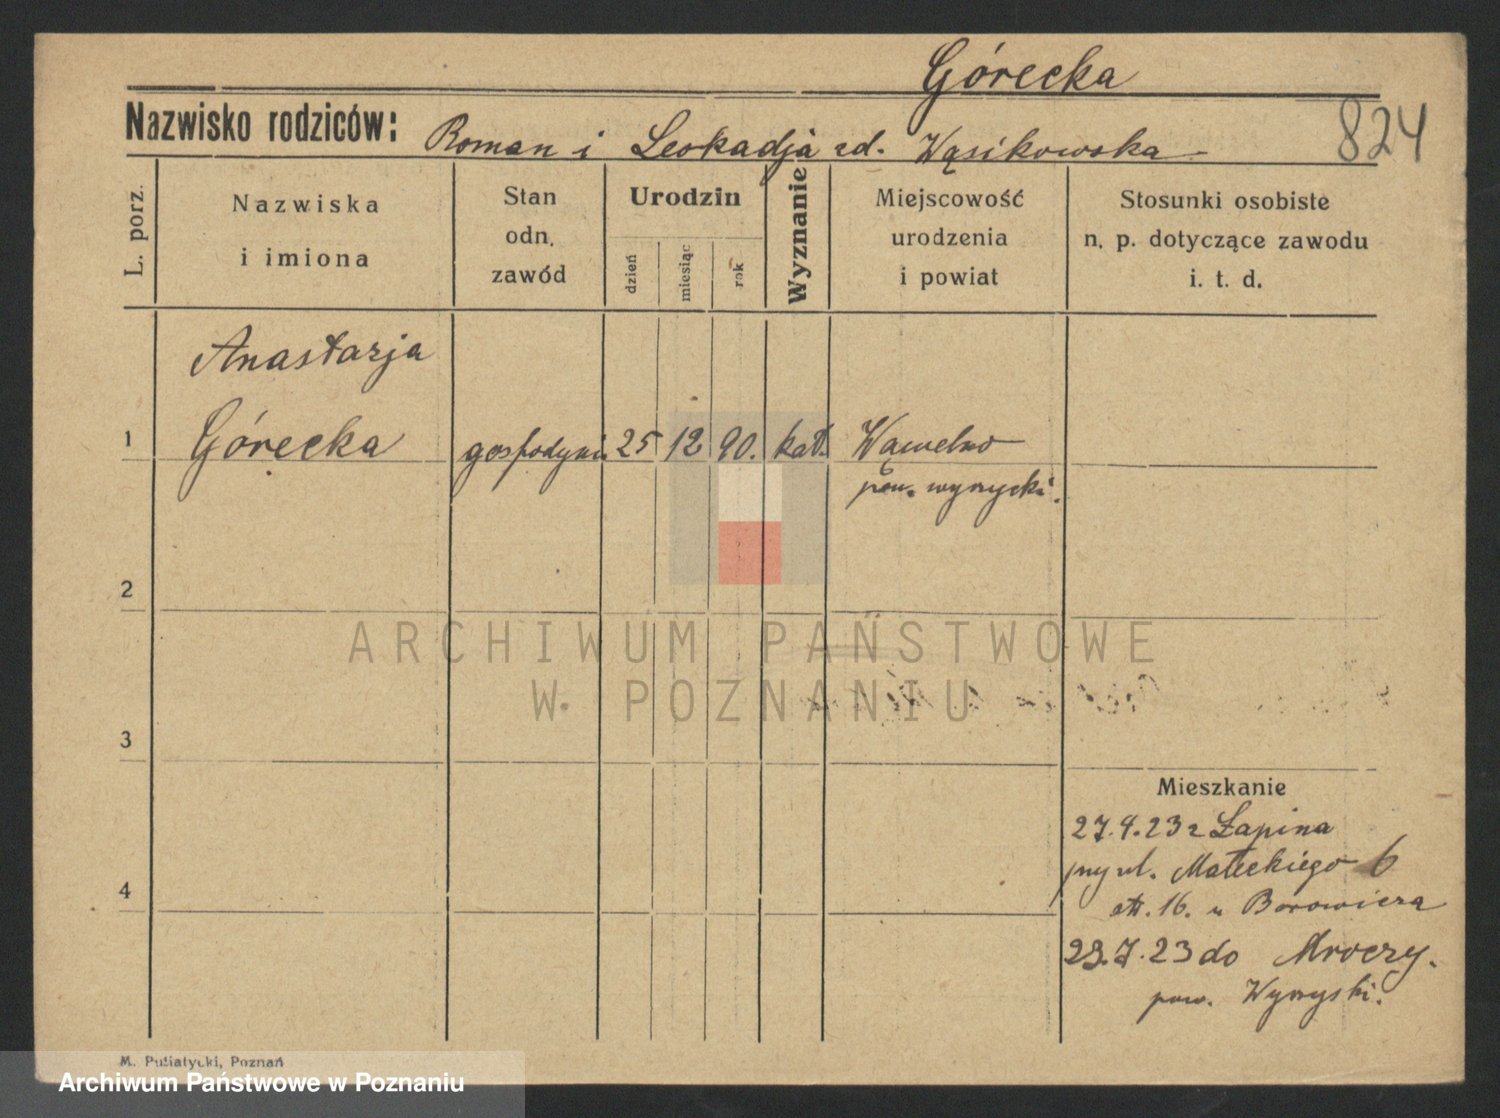 Górecka
Nazwisko rodziców: Roman i Leokadja zd. Wąsikowska
824
L. porz.
Nazwiska
i imiona
Stan
odn.
zawód
Urodzin
dzień
miesiąc
rok
Wyznanie
Miejscowość
urodzenia
i powiat
Stosunki osobiste
n. p. dotyczące zawodu
i. t. d.
Anastazja
1 Górecka gospodyni 25 12 90. kat. Wąwelno
pow. wyrzycki.
2
ARCHIWUM PAŃSTWOWE
W POZNANIU
3
Mieszkanie
27.4.23 z Łapina
przy ul. Małeckiego 6
16. u Borowicza
4
23.7.23 do Mroczy.
pow. Wyrzyski.
M. Putiatycki, Poznań
Archiwum Państwowe w Poznaniu